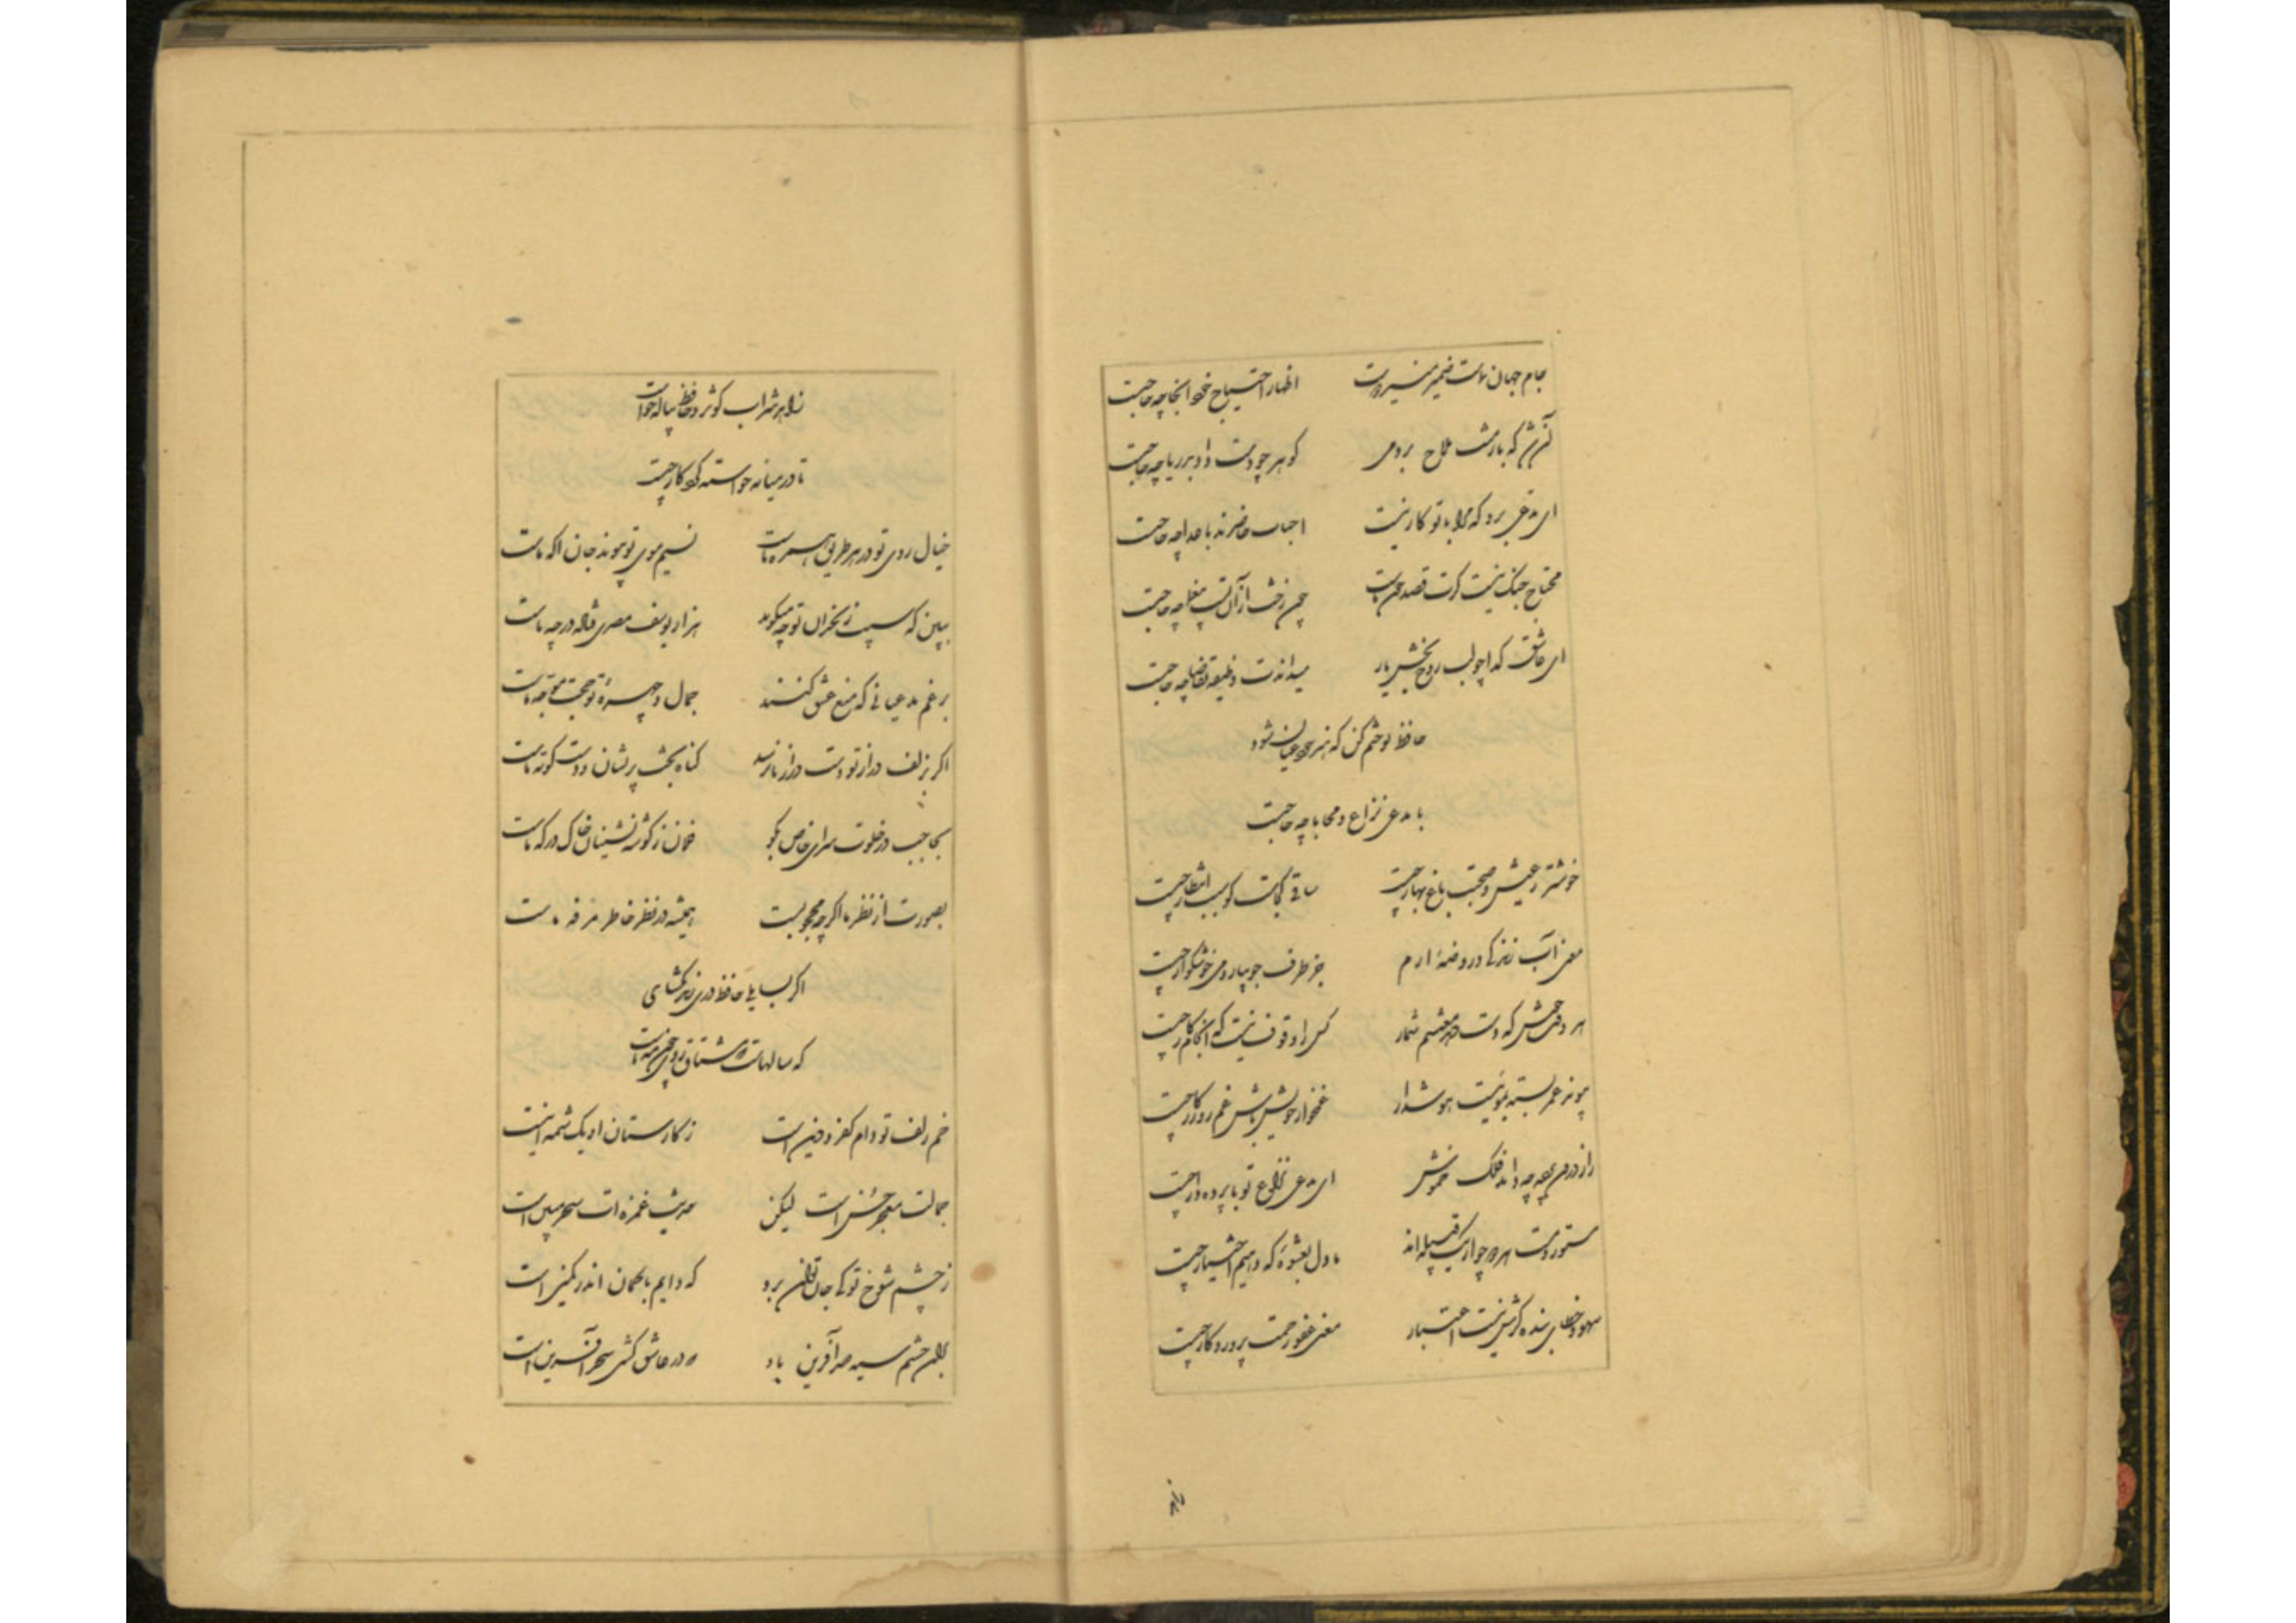 جام جهان نماست ضمیر منیر دوست اظهار احتیاج خود انجا چه حاجت
آن شد که بار منت ملاح بردمی کوهر چو دست داد بدریا چه حاجت
ای مدعی برو که مرا با تو کار نیست احباب حاضرند باعدا چه حاجت
محتاج جنک نیست کرت قصد جون رخت از آن تست بیغما چه حاجت
ای عاشق کدا چو لب روح بخش یار میداندت وظیفه تقاضا چه حاجت
حافظ تو ختم کن که هنر خود عیان شود
با مدعی نزاع و محابا چه حاجت
خوشتر ز عیش و صحبت باغ و بهار چیست ساقی کجاست کو سبب انتظار چیست
معنی آب زندکی و روضهٔ ارم جز طرف جویبار و می خوشکوار چیست
هر وقت خوش که دست دهد مغتنم شمار کس را وقوف نیست که انجام کار چیست
پیوند عمر بسته بموئیست هوش دار غمخوار خویش باش غم روزکار چیست
راز درون پرده چه داند فلک خموش ای مدعی نزاع تو با پرده دار چیست
مستور و مست هر دو چو از یک قبیله اند ما دل بعشوهٔ که دهیم اختیار چیست
سهو و خطای بنده کرش نیست اعتبار معنی عفو و رحمت پروردکار چیست
زاهد
زاهد شراب کوثر و حافظ پیاله خواست
تا در میانه خواسته کردکار چیست
خیال روی تو در هر طریق همره ماست نسیم موی تو پیوند جان اکه ماست
ببین که سیب زنخدان تو چه میکوید هزار یوسف مصری فتاده در چه ماست
برغم مدعیانی که منع عشق کنند جمال و چهرهٔ تو حجت موجه ماست
اکر بزلف دراز تو دست ما نرسد کناه بخت پریشان و دست کوته ماست
بحاجب در خلوت سرای خاص بکو فلان ز کوشه نشینان خاک درکه ماست
بصورت از نظر ما اکرچه محجوبست همیشه در نظر خاطر مرفه ماست
اکر بسایلی حافظ دری زند بکشای
که سالهاست که مشتاق روی چون مه ماست
خم زلف تو دام کفر و دین است ز کارستان او یک شمه اینست
جمالت معجز حسن است لیکن حدیث غمزه ات سحر مبین است
ز چشم شوخ تو کی جان توان برد که دایم با کمان اندر کمین است
بران چشم سیه صد آفرین باد که در عاشق کشی سحر آفرین است